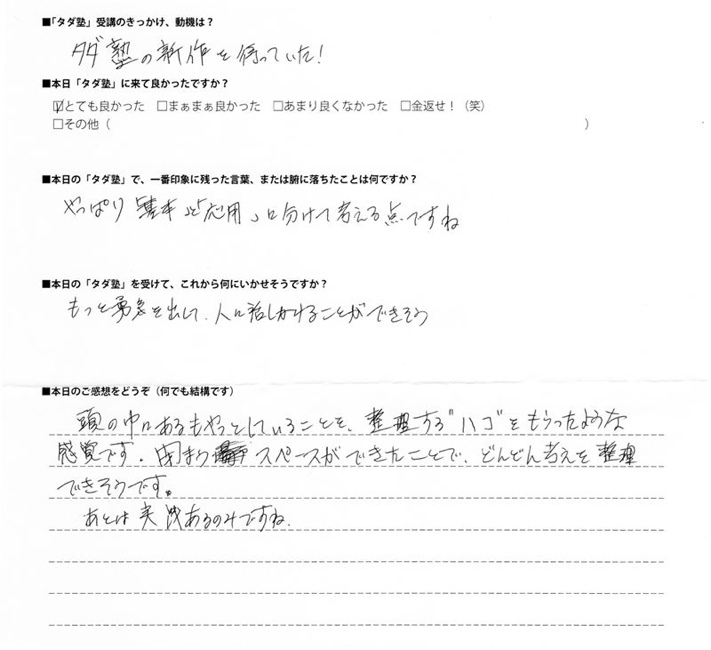 ■「タダ塾」受講のきっかけ、動機は？
タダ塾の新作を待っていた！
■本日「タダ塾」に来て良かったですか？
☑とても良かった　□まぁまぁ良かった　□あまり良くなかった　□金返せ！（笑）
□その他（　　　　　　　　　　）
■本日の「タダ塾」で、一番印象に残った言葉、または腑に落ちたことは何ですか？
やっぱり「基本」と「応用」に分けて考える点ですね
■本日の「タダ塾」を受けて、これから何にいかせそうですか？
もっと勇気を出して、人に話しかけることができそう
■本日のご感想をどうぞ（何でも結構です）
頭の中にあるもやっとしていることを、整理する"ハコ"をもらったような
感覚です。スペースができたことで、どんどん考えを整理
できそうです。
あとは実践あるのみですね.